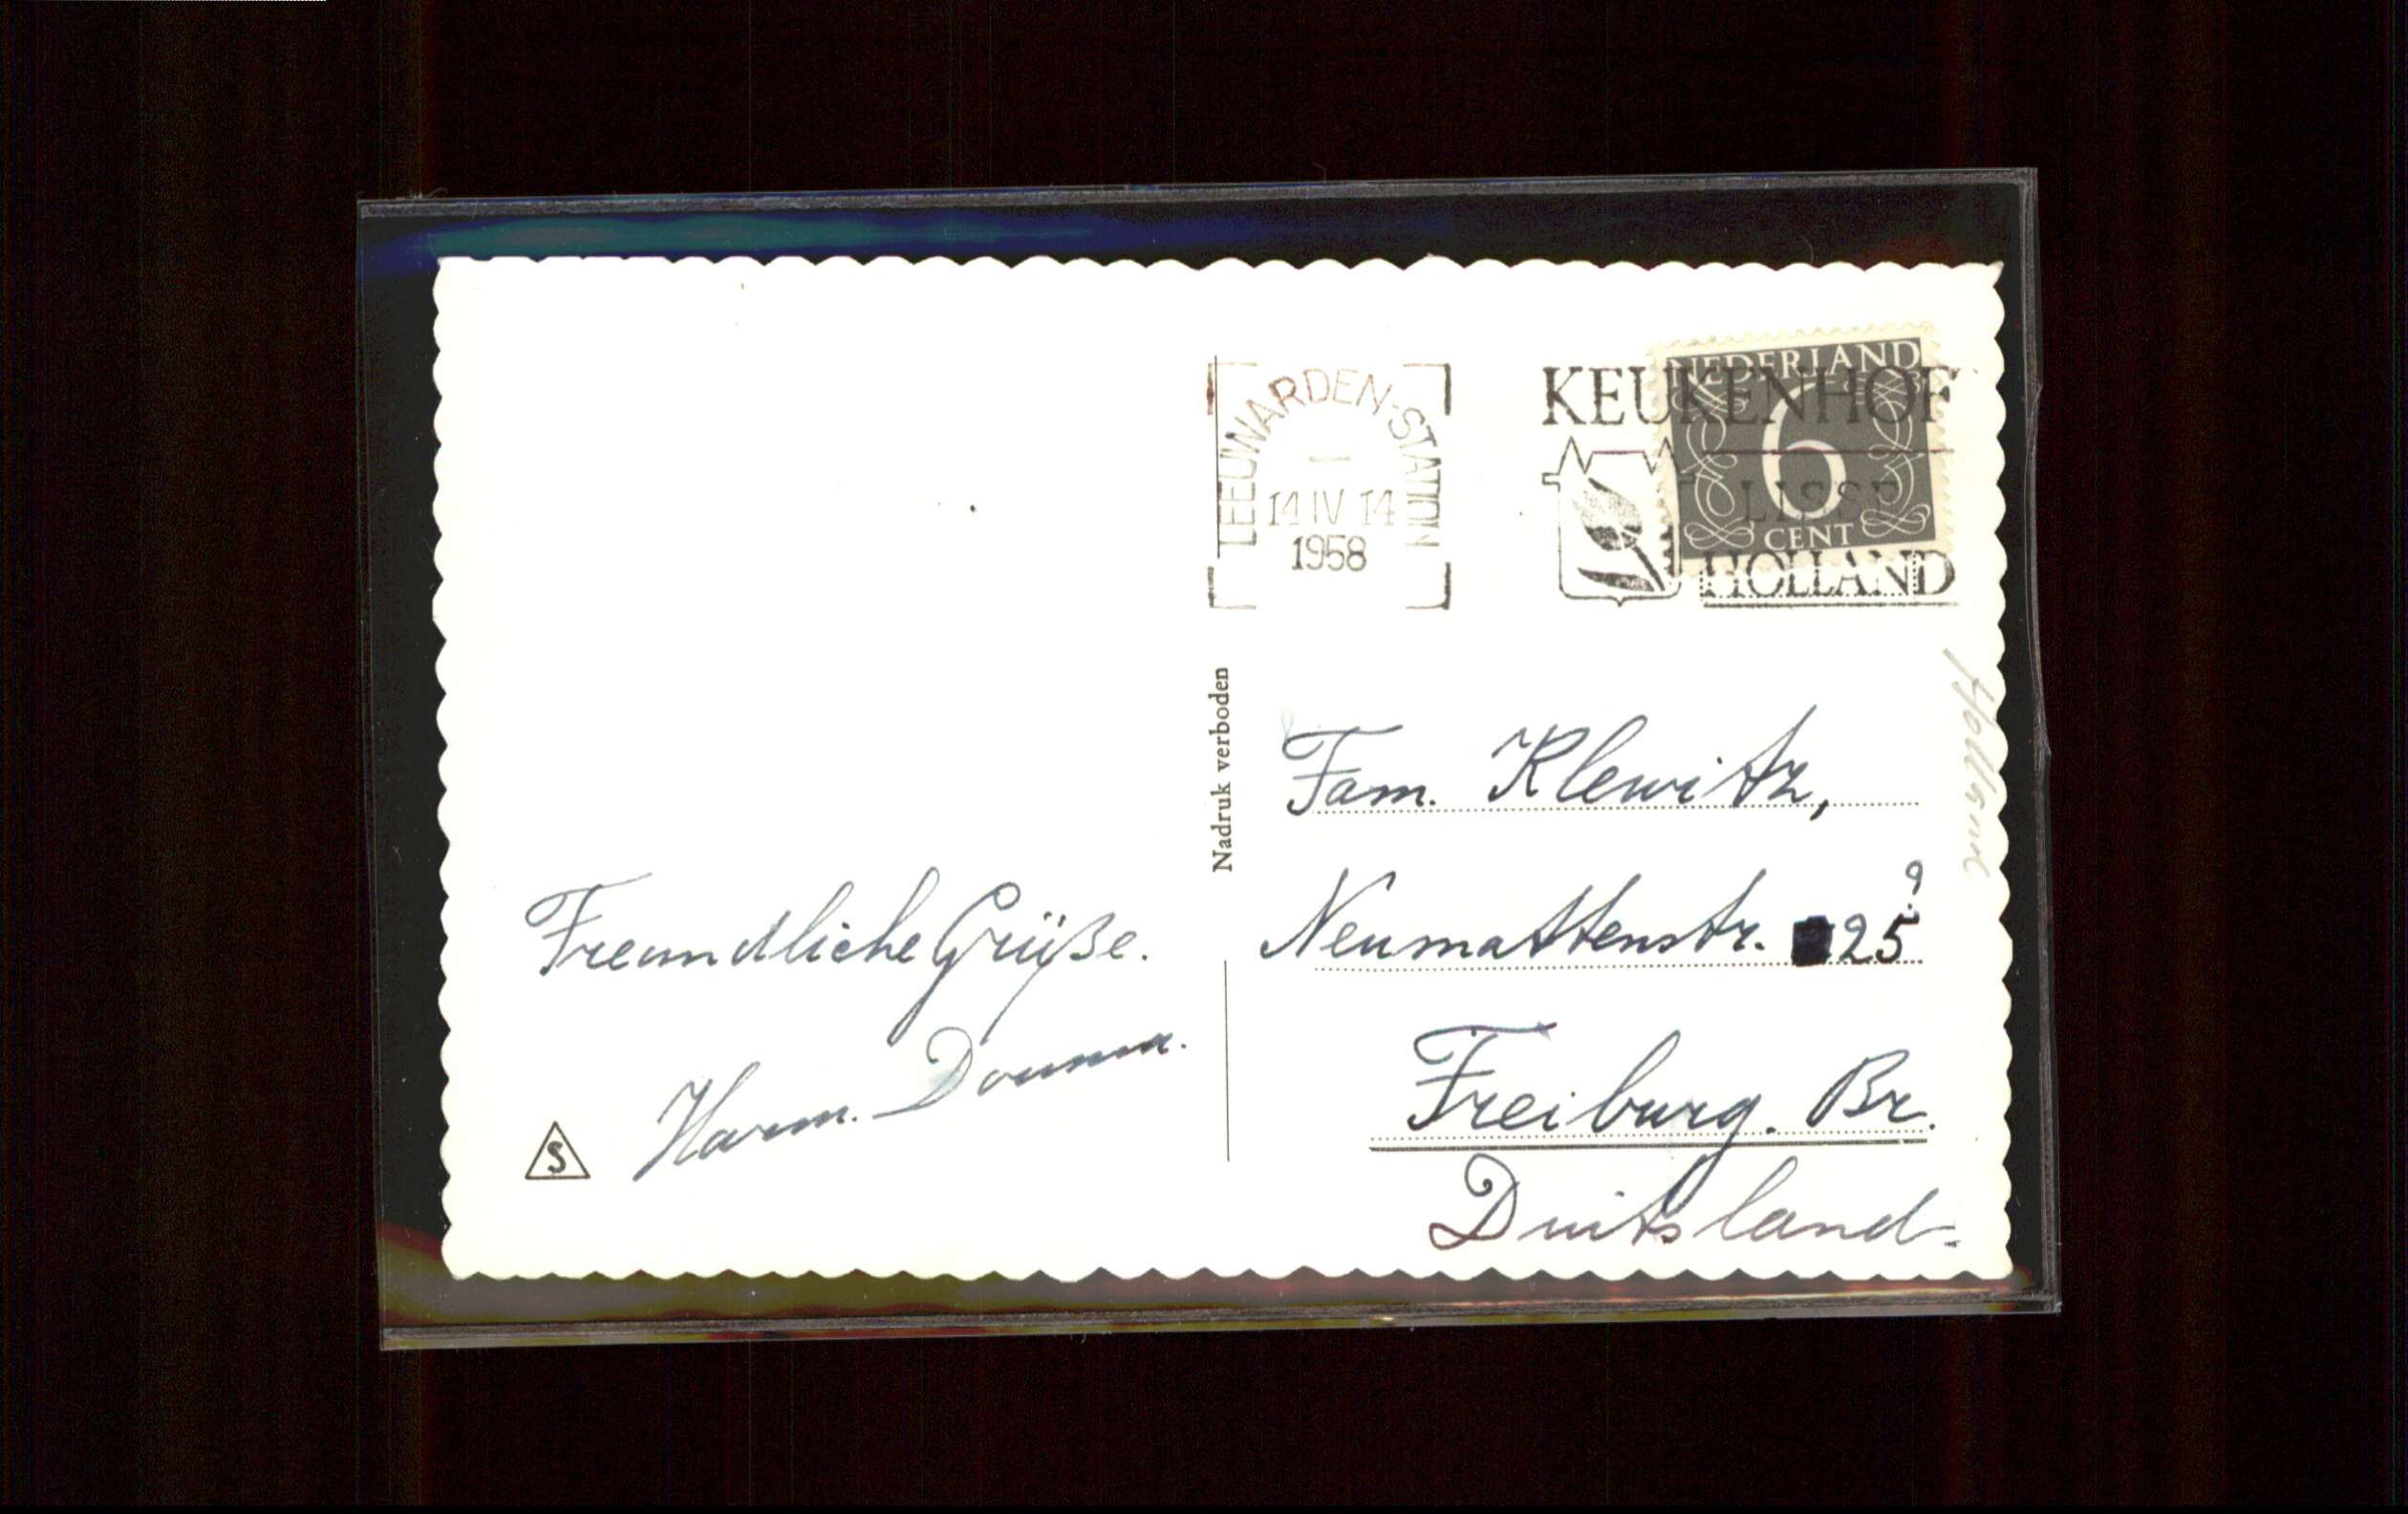 LEEUWARDEN-STATION
14 IV 14
1958
KEUKENHOF
LISSE
HOLLAND
NEDERLAND
6
CENT
Holland
Nadruk verboden
Fam. Klewitz,
Neumattenstr. 25 ?
Freiburg. Br.
Duitsland.
Freundliche Grüße.
Harm. Douma.
S